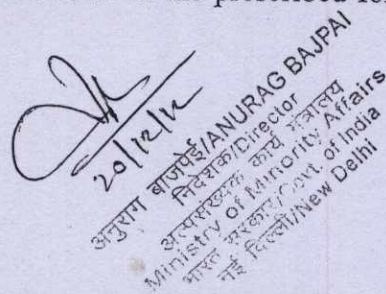 the prescribed
20/12/12
अनुराग बाजपेई/ANURAG BAJPAI
निदेशक/Director
अल्पसंख्यक कार्य मंत्रालय
Ministry of Minority Affairs
भारत सरकार/Govt. of India
नई दिल्ली/New Delhi